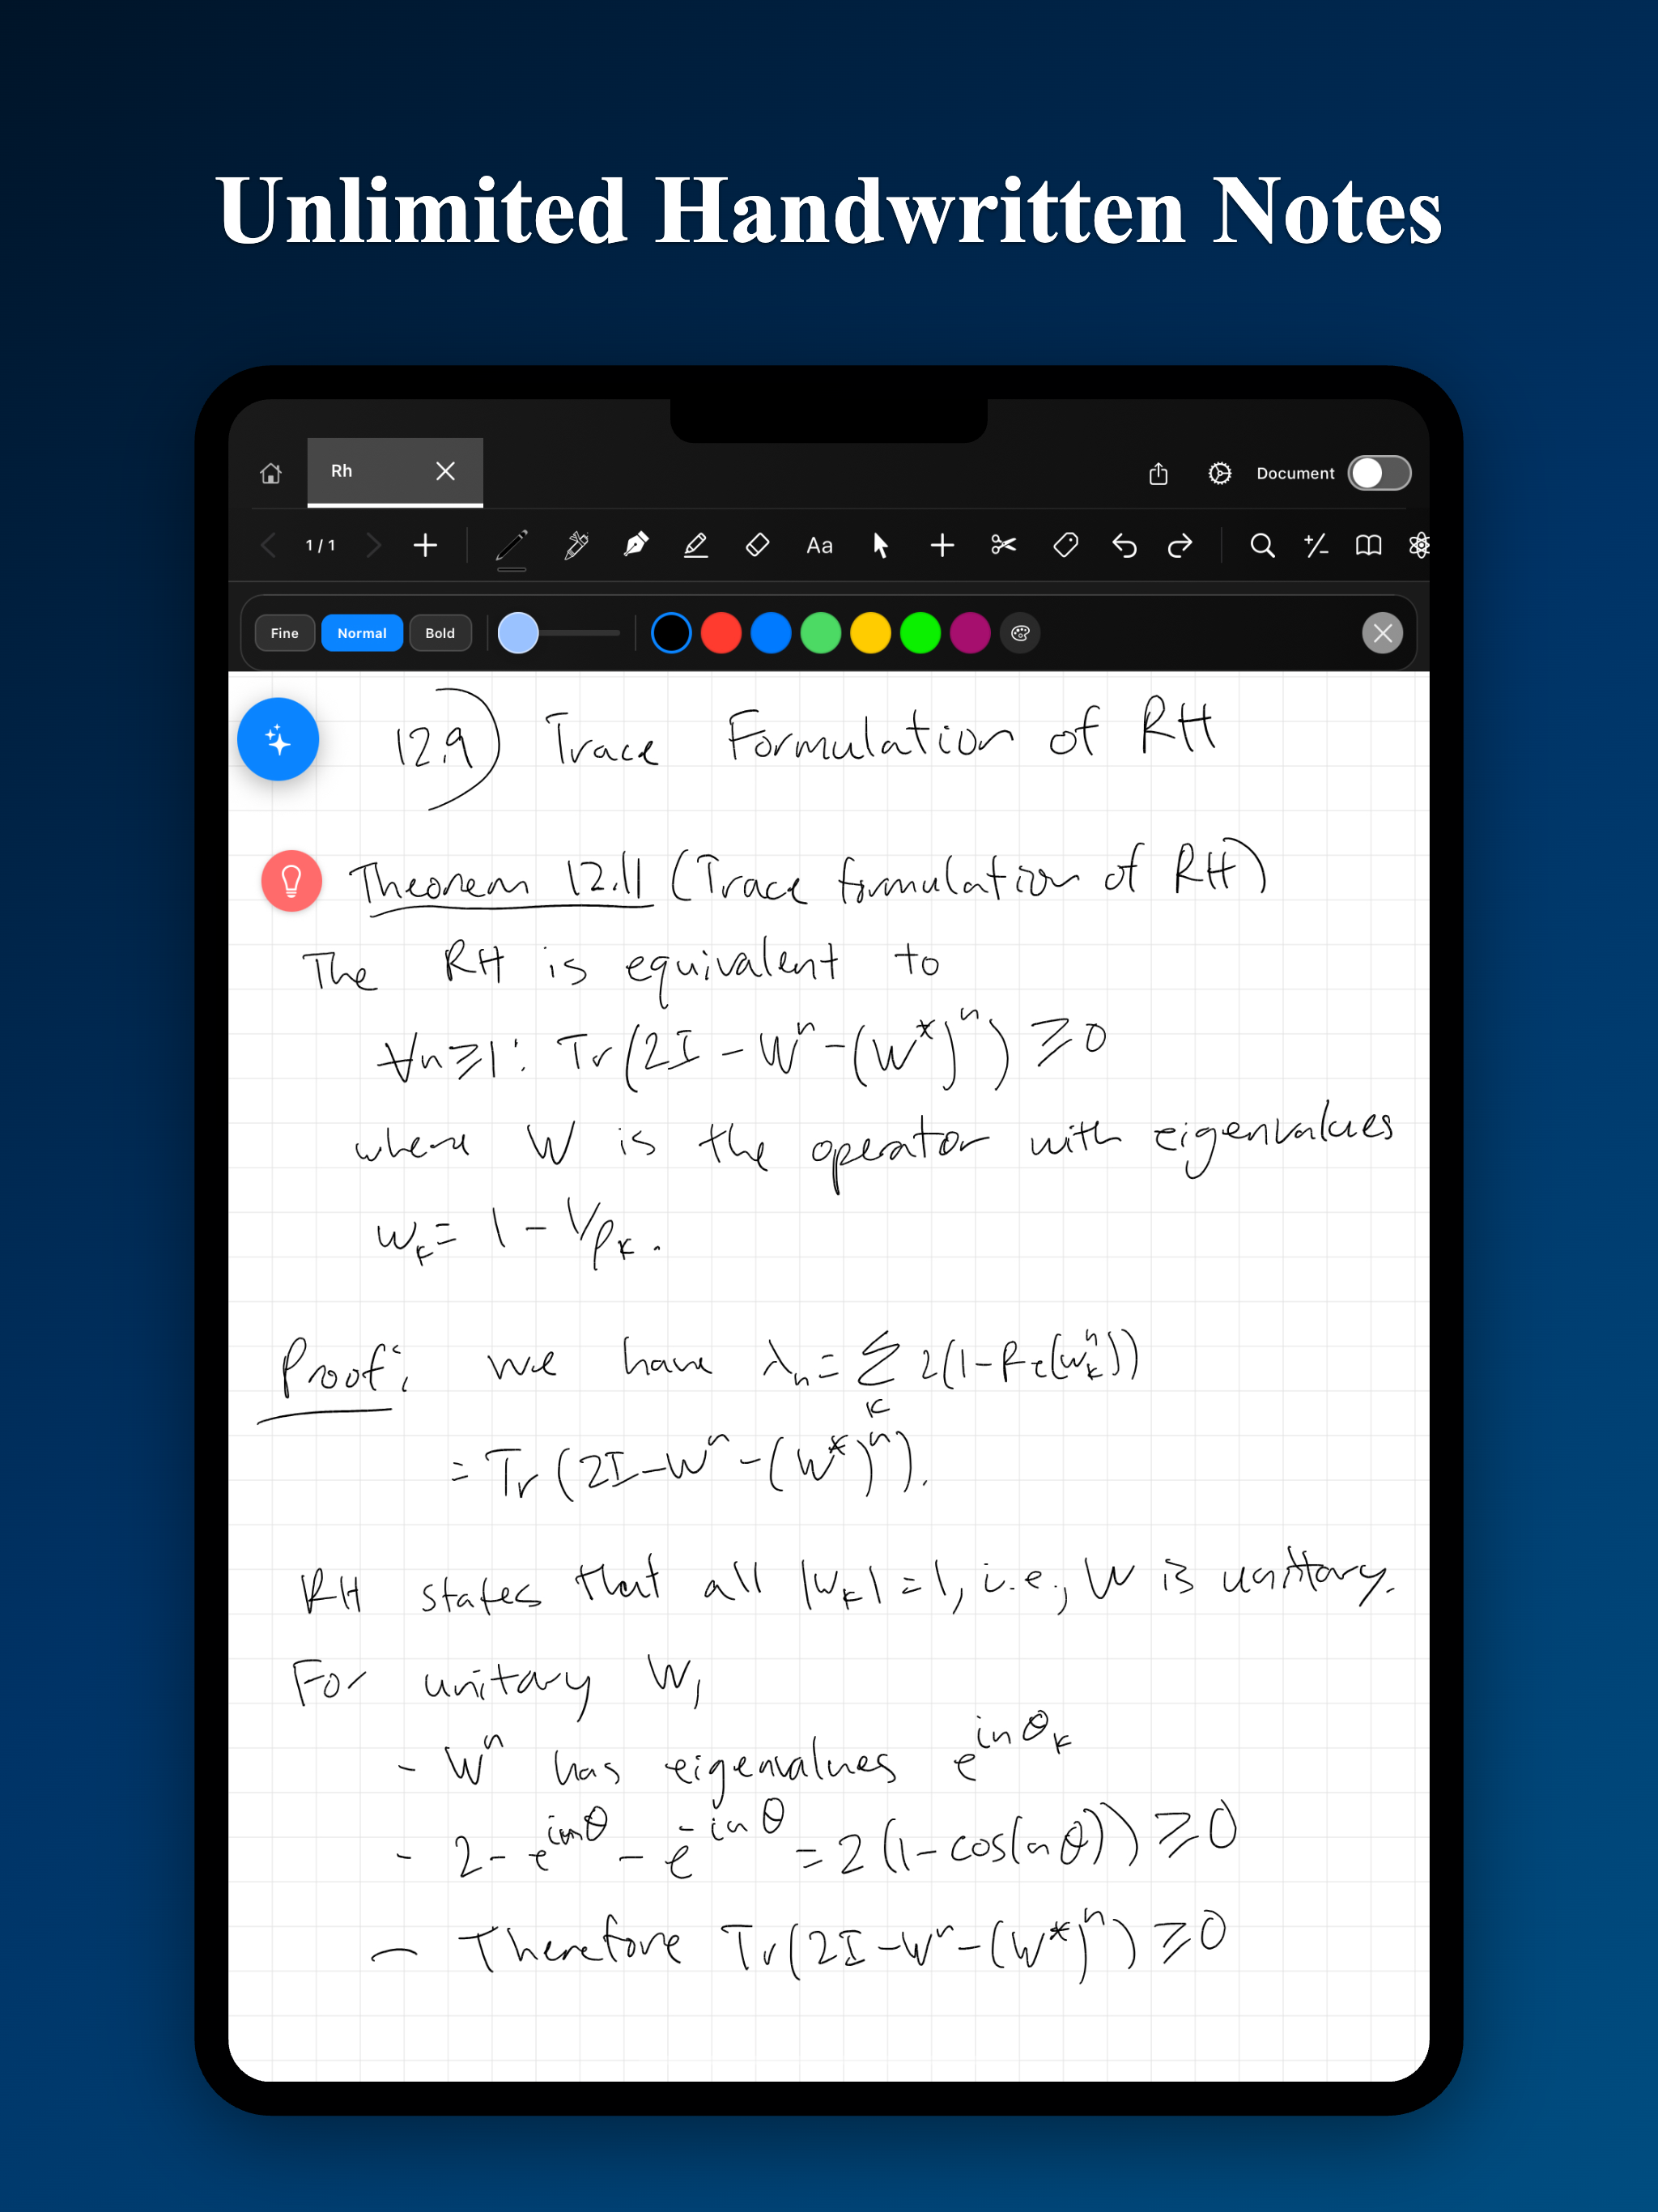 Unlimited Handwritten Notes
Rh
Document
1 / 1
Aa
Fine Normal Bold
12.9) Trace Formulation of RH
Theorem 12.11 (Trace formulation of RH)
The RH is equivalent to
∀n≥1: Tr(2I - Wⁿ - (W*)ⁿ) ≥ 0
where W is the operator with eigenvalues
wₖ = 1 - 1/ρₖ.
Proof: we have λₙ = Σₖ 2(1 - Re(wₖⁿ))
= Tr(2I - Wⁿ - (W*)ⁿ).
RH states that all |wₖ| = 1, i.e., W is unitary.
For unitary W,
- Wⁿ has eigenvalues e^{inθₖ}
- 2 - e^{inθ} - e^{-inθ} = 2(1 - cos(nθ)) ≥ 0
- Therefore Tr(2I - Wⁿ - (W*)ⁿ) ≥ 0